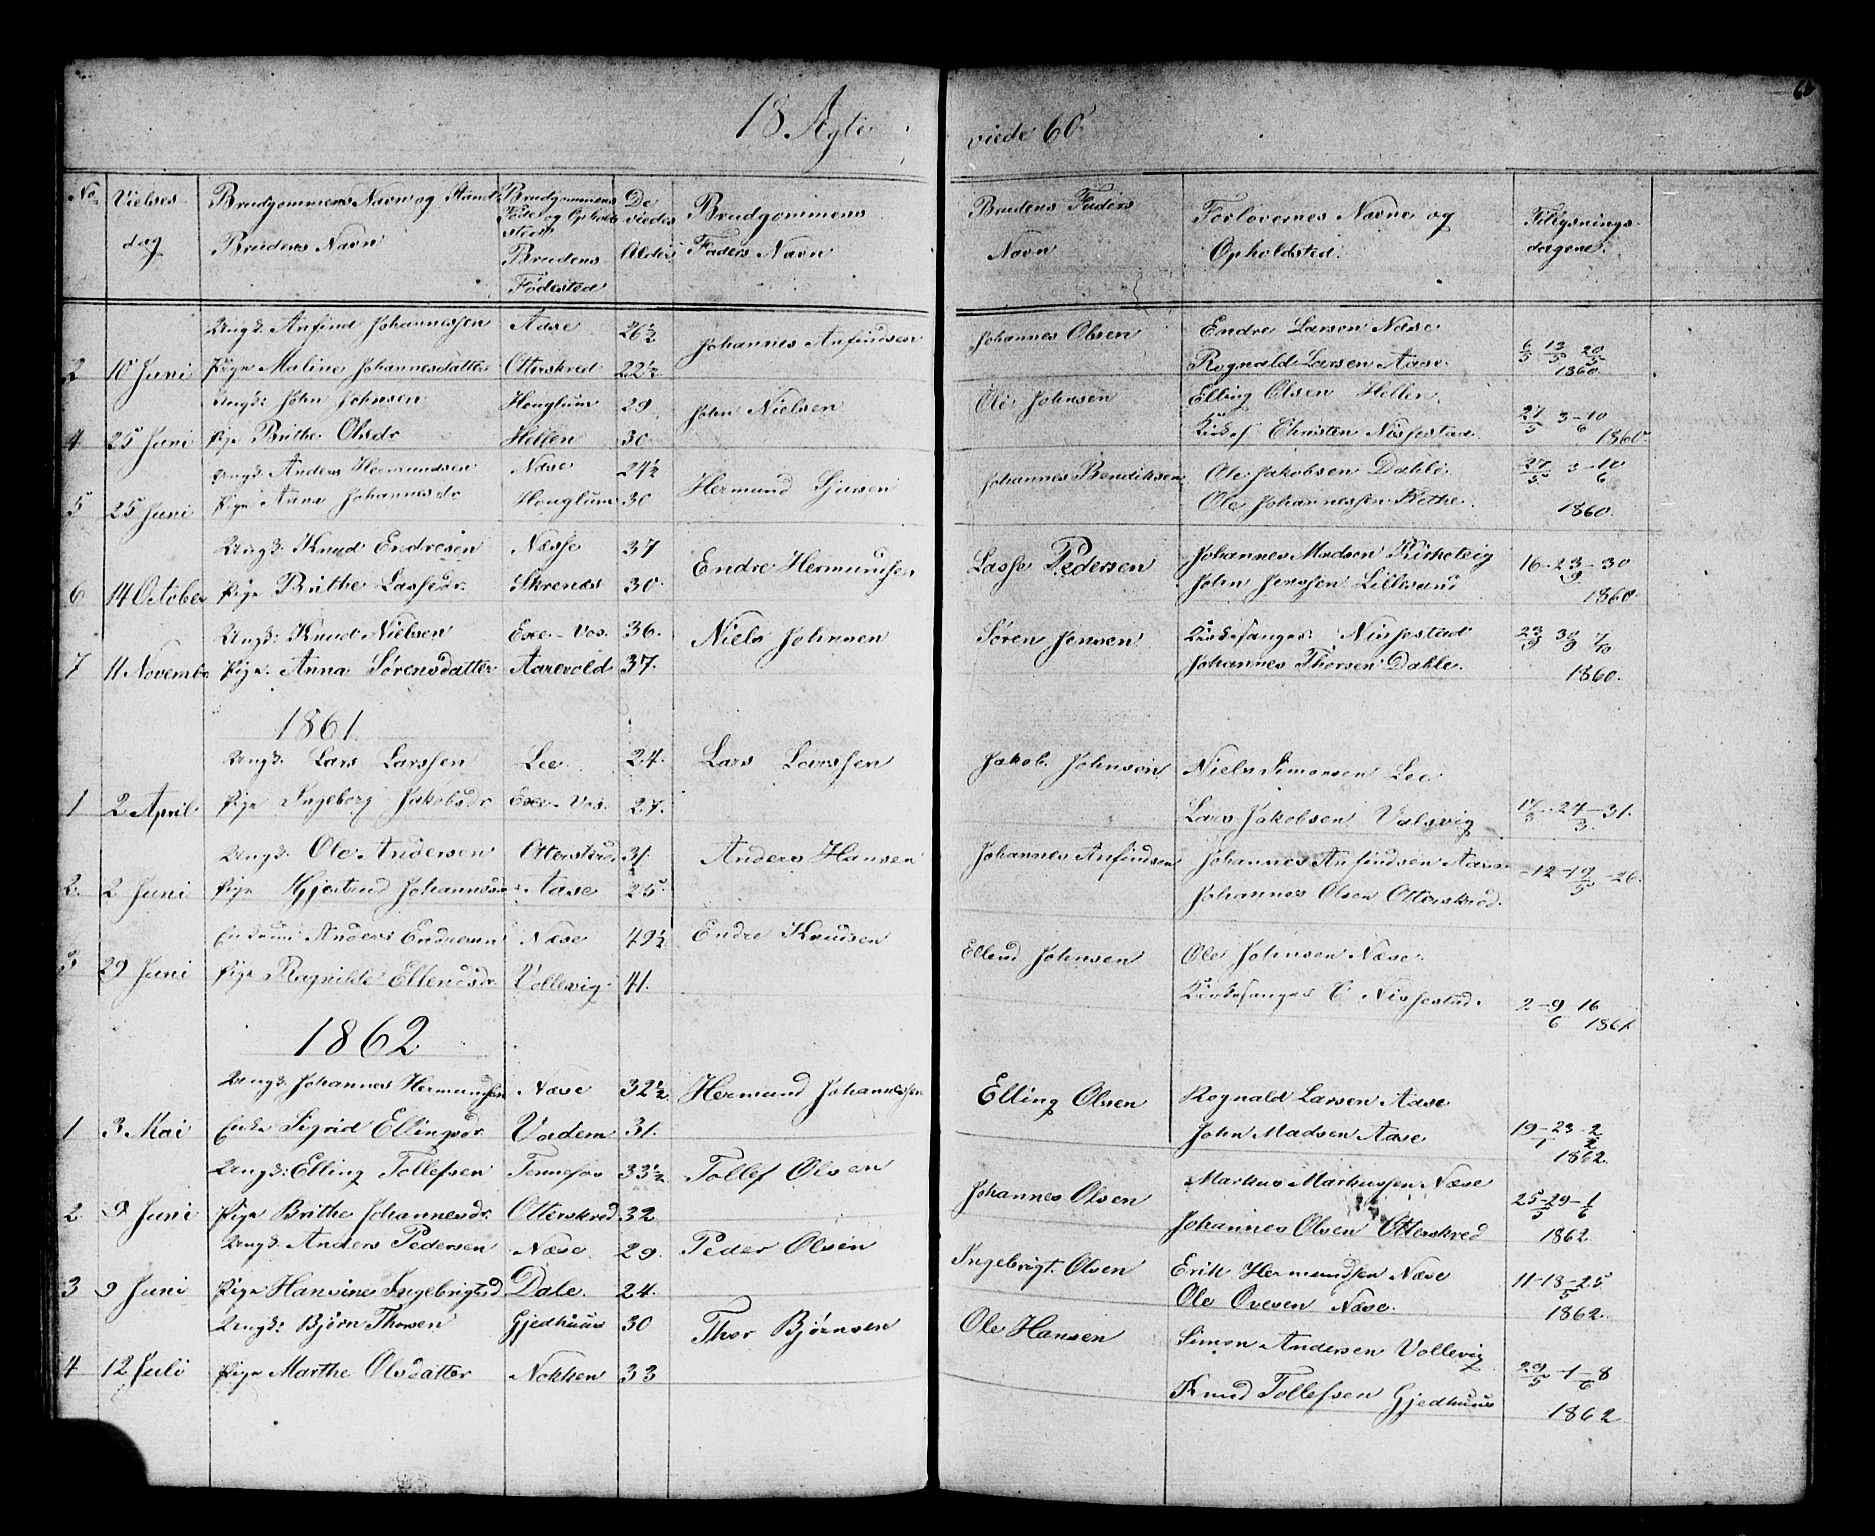 18 Ægte viede 60
No
Vielses dag
Brudgommens Navn og Stand Brudens Navn
Brudgommens Føde og Opholdssted Brudens Fødested
De viedes Alder
Brudgommens Faders Navn
Brudens Faders Navn
Forlovernes Navne og Opholdsted.
Tillysnings dagene.
Ungk. Anfind Johannessen Aase 26½ Johannes Anfindsen Johannes Olsen Endre Larsen Næse
2 10 Juni Pige Maline Johannesdatter Otterskred 22½ Rognald Larsen Aase 6/5 13/5 20/5 1860
Ungk: John Johnsen Houglum 29 John Nielsen Ole Johnsen Elling Olsen Hellen
4 25 Juni Pige Brithe Olsdr Hellen 30 Kirkes. Christen Nissestad 27/5 3-10/6 1860.
Ungk: Anders Hermundsen Næse 24½ Hermund Sjursen Johannes Bendiksen Ole Jakobsen Dahle
5 25 Juni Pige Anna Johannesdr Houglum 30 Ole Johannessen Hethe. 27/5 3-10/6 1860.
Ungk: Knud Endresen Næsse 37 Endre Hermundsen Lasse Pedersen Johannes Madsen Kirketeig
6 14 October Pige Brithe Lassedr. Skrenæs 30 John Jenssen Lillesund 16-23-30/9 1860
Ungk: Knud Nielsen Exe-Vos. 36. Niels Johnsen Søren Jensen Kirkesanger Nissestad
7 11 Novembe Pige. Anna Sørensdatter Aarevold 37. Johannes Thorsen Dahle. 23/9 30/9 7/10 1860.
1861
Ungk. Lars Larssen Lee 24. Lars Larssen Jakob. Johnson Niels Simonsen Lee
1 2 April Pige Ingeborg Jakobsdr Exe-Vos. 27. Lars Jakobsen Valsvig 17/3-24-31./3.
Ungk. Ole Andersen Otterskred 31. Anders Hansen Johannes Anfindsen Johannes Anfindsen Aase
2. 2 Juni Pige Gjertrud Johannesdr Aase 25. Johannes Olsen Otterskred. -12-19/5-26.
Enkem: Anders Endresen Næse 49½ Endre Knudsen Ellend Johnsen Ole Johnsen Næse.
3 29 Juni Pige Ragnilde Ellendsdr Vollevig 41. Kirkesanger C Nissestad. 2-9 16/6 1861.
1862
Ungk. Johannes Hermundsen Næse 32½ Hermund Johannessen Elling Olsen Rognald Larsen Aase
1 3 Mai Enke Sigrid Ellingsdr. Vadem 31. John Madsen Aase 19-23/1 2/2 1862
Ungk: Elling Tollefsen Tennefos 33½ Tollef Olsen Johannes Olsen Markus Markussen Næse
2 9 Juni Pige Brithe Johannesdr. Otterskred 32 Johannes Olsen Otterskred 25-29/5-1/6 1862
Ungk. Anders Pedersen Næse. 29. Peder Olsen Ingebrigt. Olsen Erik Hermundsen Næse
3 9 Juni Pige Hansine Ingebrigtsd Dale. 24. Ole Ovesen Næse. 11-18-25/5 1862.
Ungk: Bjørn Thorsen Gjedhuus 30 Thor Bjørnsen Ole Hansen Simon Andersen Vollevig
4 12 Juli Pige Marthe Olsdatter Nokken 33 Knud Tollefsen Gjedhuus 29/5-1-8/6 1862